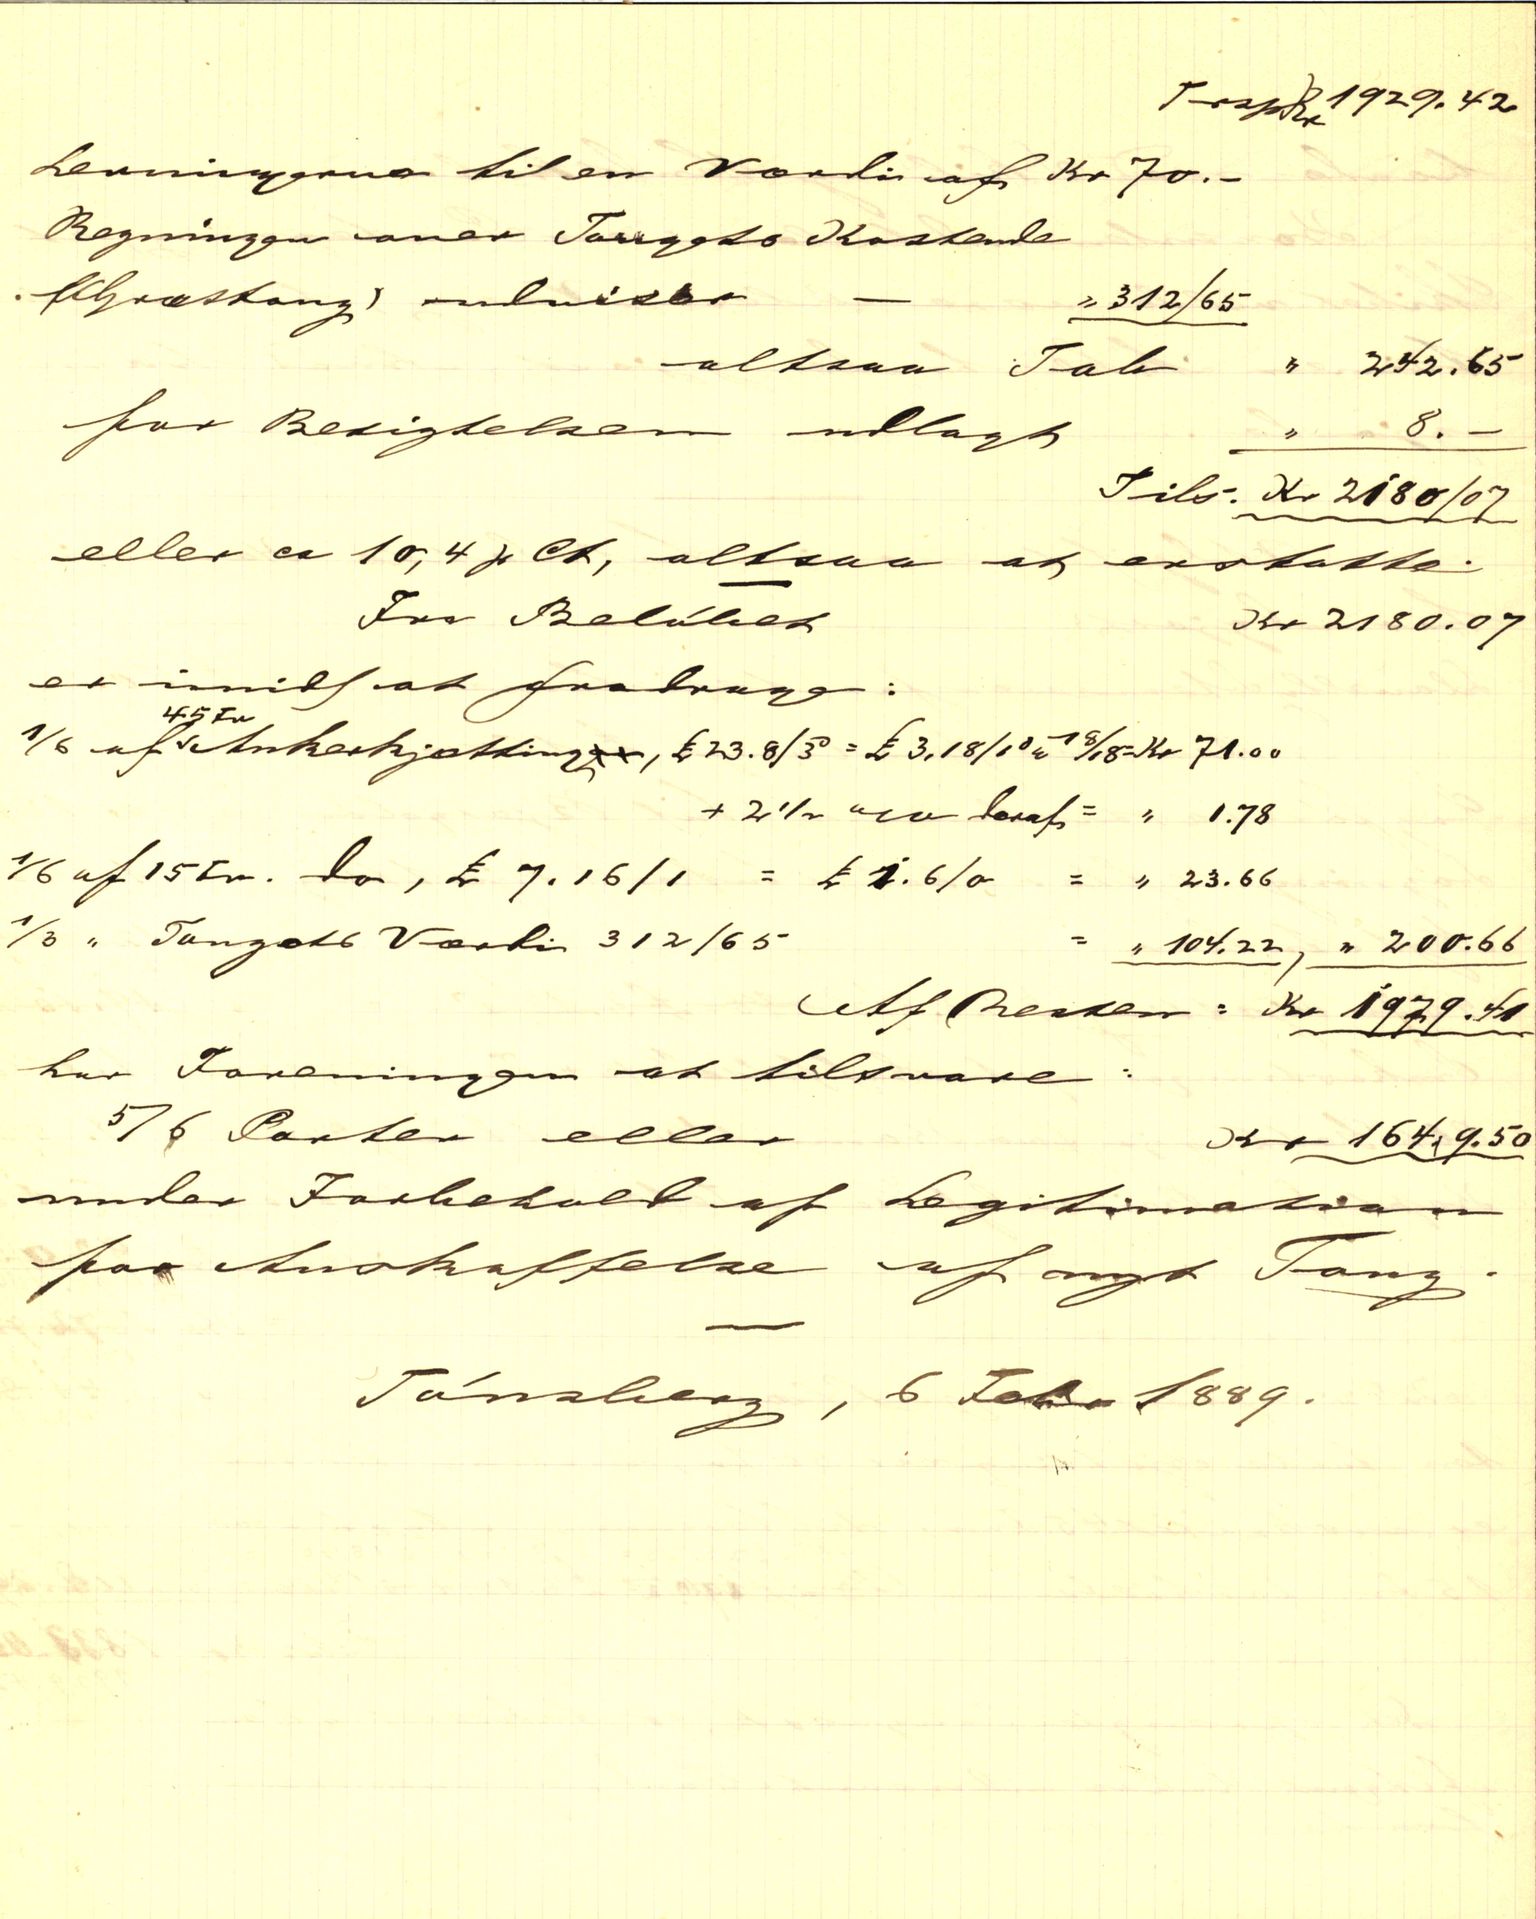 Trsp Kr 1929.42
Levningerne til en Værdi af Kr 70.-
Regningen over Tougets Kostende
(Græstoug) udviser — " 312/65
altsaa Tab " 242.65
for Besigtelsen udlagt " 8.-
Tils. Kr 2180/07
eller ca 10,4 p Ct, altsaa at erstatte.
Fra Beløbet Kr 2180.07
er imidl at fradrage:
45 Fv
1/6 af Ankerkjætting, £ 23.8/3 = £ 3.18/1 à 18/18 = Kr 71.00
+ 2 1/2 % deraf = " 1.78
1/6 af 15 Fv. do, £ 7.16/1 = £ 1.6/0 = " 23.66
1/3 " Tougets Værdi 312/65 = " 104.22, " 200.66
Af Resten = Kr 1979.41
har Foreningen at tilsvare:
5/6 Parter eller Kr 1649.50
under Forbehold af Legitimation
for Anskaffelse af nyt Toug.
Tønsberg, 6 Febr 1889.